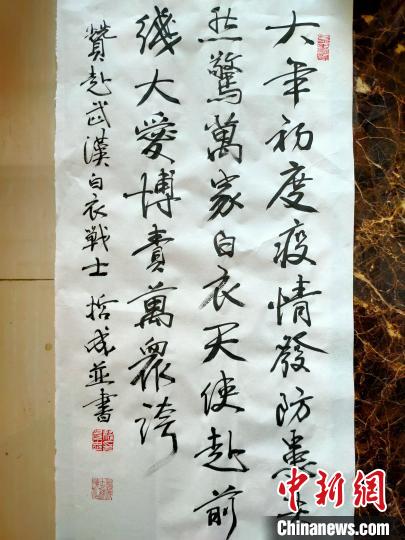 大年初度疫情發防患未
然驚萬家白衣天使赴前
綫大愛博萬眾誇
贊赴武漢白衣戰士 哲成並書
中新网
Chinanews.com